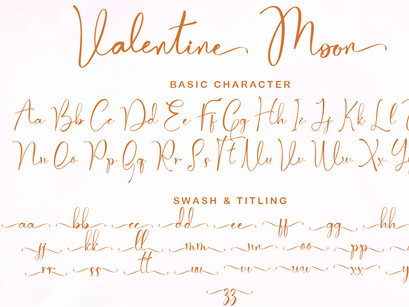 Valentine Moon
BASIC CHARACTER
Aa Bb Cc Dd Ee Ff Gg Hh Ii Jj Kk Ll
Nn Oo Pp Qq Rr Ss Tt Uu Vv Ww Xx
SWASH & TITLING
aa bb cc dd ee ff gg hh
jj kk ll mm nn oo pp
rr ss tt uu vv ww xx
zz